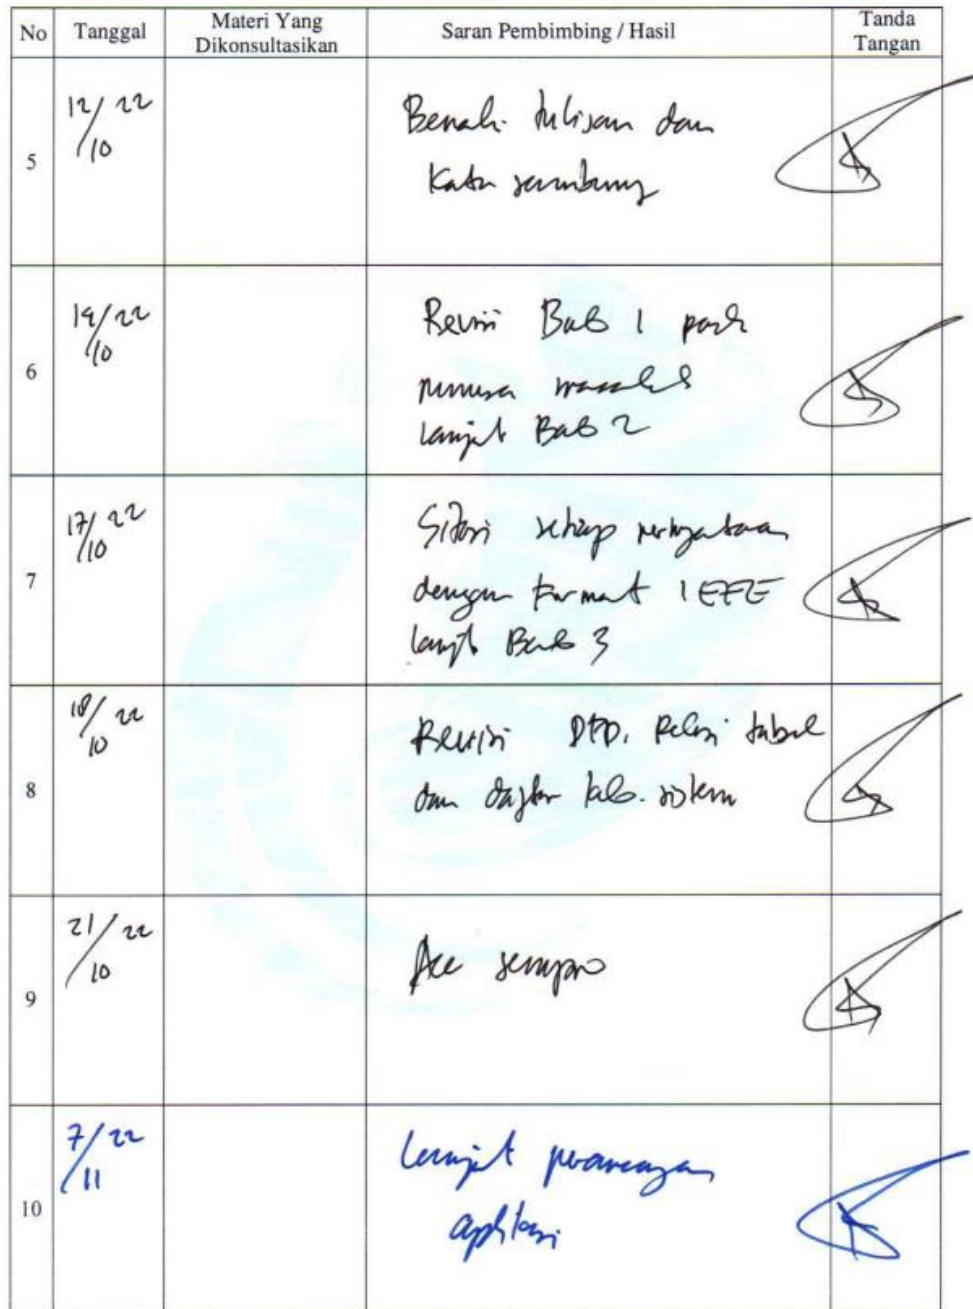 No Tanggal Materi Yang Dikonsultasikan Saran Pembimbing / Hasil Tanda Tangan
5 12/10 22 Benahi tulisan dan
kata sambung
6 14/10 22 Revisi Bab 1 pada
rumusan masalah
lanjut Bab 2
7 17/10 22 Sitasi setiap pernyataan
dengan format IEEE
lanjut Bab 3
8 18/10 22 Revisi DFD, Relasi tabel
dan daftar keb. sistem
9 21/10 22 Acc sempro
10 7/11 22 lanjut perancangan
aplikasi